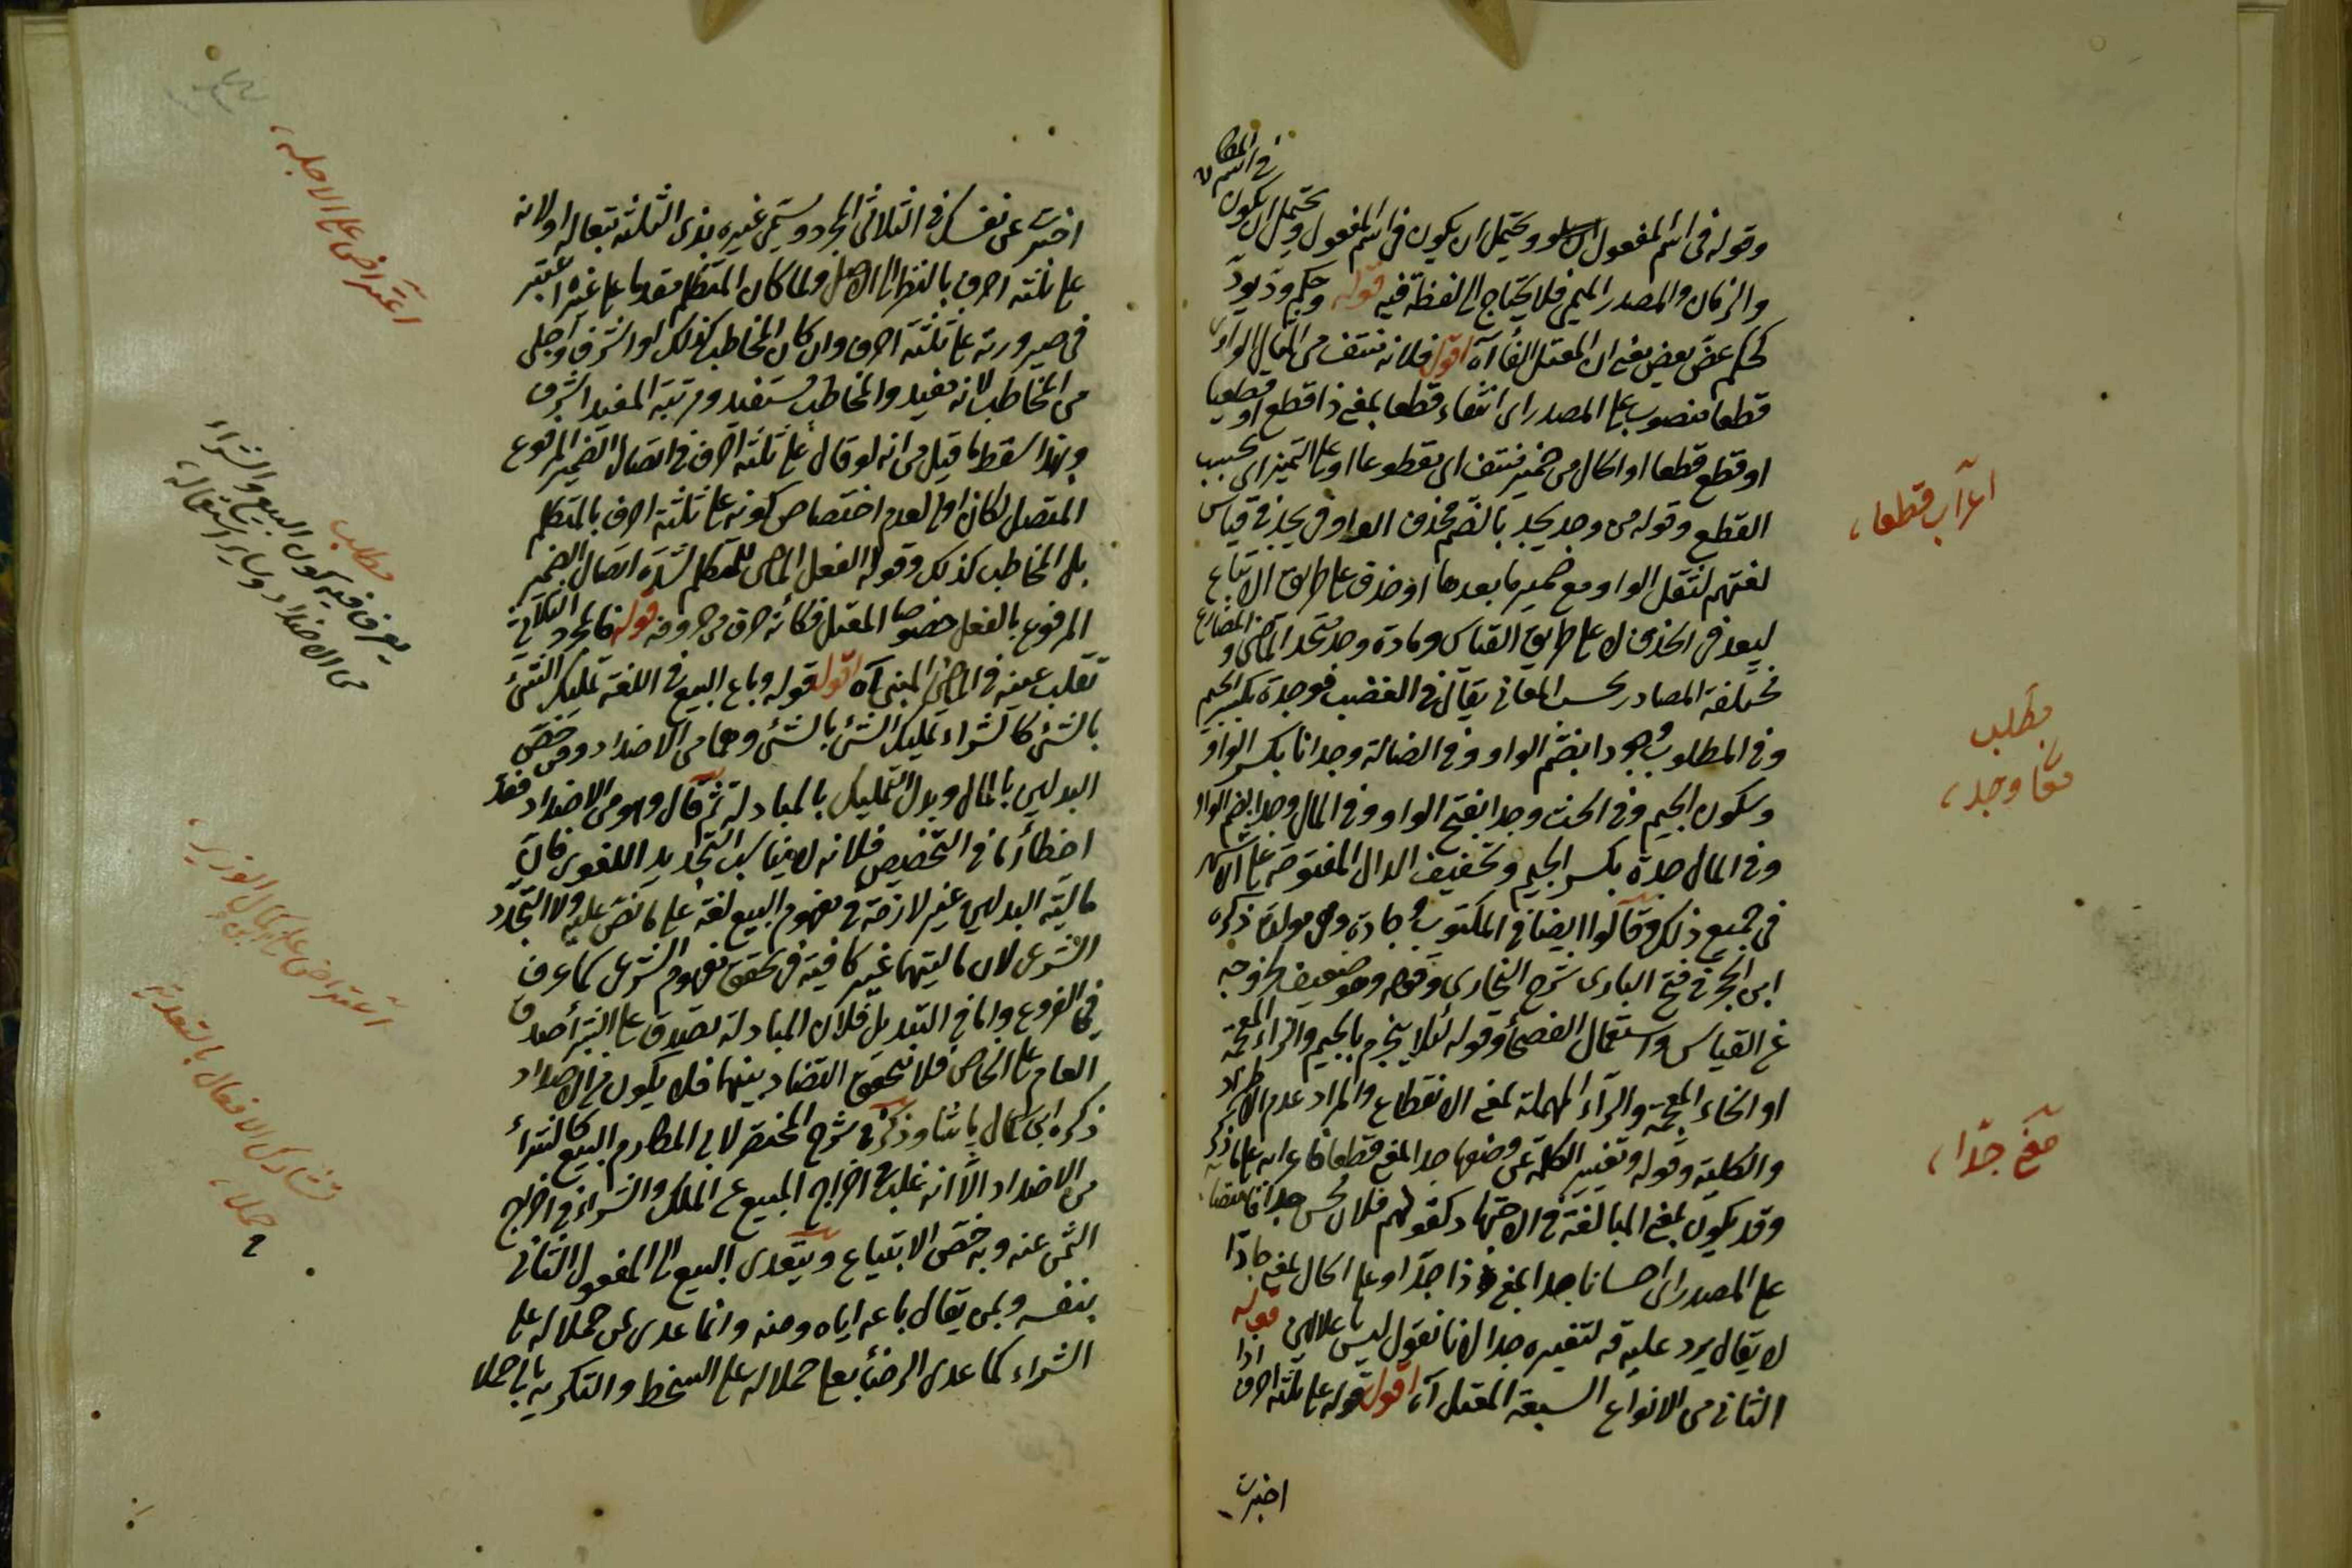 في اسم المكان
وقوله في اسم المفعول ويحتمل ان يكون في اسم المفعول ويحتمل ان يكون
والزمان والمصدر الميمي فلا يحتاج الى لفظة فيه قوله وحكم ود يود
كحكم عض يعض يعني ان المعتل الفاء آه اقول فلانه منتف من المثال الواوي
قطعا منصوب على المصدر اى انتفاء قطعا بمعنى ذا قطع او قطعيا
او قطع قطعا او الحال من ضمير منتف اى مقطوعا او على التميز اى بحسب
القطع وقوله من وجد يجد بالضم فحذف الواو في يجد في قياس
لغتهم لثقل الواو مع ضمير ما بعدها او حذف على طريق الاتباع
ليعد في الحذف لا على طريق القياس ومادة وجد متحد الماضى والمضارع
مختلفة المصادر بحسب المعانى يقال في الغضب موجدة بكسر الجيم
وفي المطلوب وجودا بضم الواو وفي الضالة وجدانا بكسر الواو
وسكون الجيم وفي الحب وجدا بفتح الواو وفي المال وجدا بضم الواو
وفي المال جدة بكسر الجيم وتخفيف الدال المفتوحة على الاشهر
في جميع ذلك وقالوا ايضا في المكتوب وجادة وهى مولدة ذكره
ابن الحجر في فتح البارى شرح البخارى وقوله وهو ضعيف لخروجه
عن القياس واستعمال الفصحاء وقوله لئلا ينجزم بالجيم والزاء المعجمة
او الخاء المعجمة والراء المهملة بمعنى الانقطاع والمراد عدم الاطراد
والكلية وقوله وتغيير الكلمة عن وضعها جدا بمعنى قطعا فاعرابه على ما ذكر
وقد يكون بمعنى المبالغة في الاجتهاد كقولهم فلان محسن جدا فانتصابه
على المصدر اى احسانا جدا بمعنى ذا جد او على الحال بمعنى جادا
لا يقال يرد عليه قه لتغييره جدا لانا نقول ليس باعلالين قوله
الثانى من الانواع السبعة المعتل آه اقول قوله على ثلثة احرف اذا
اخبرت
اعراب قطعا
مطلب
معانى وجد
معنى جدا
اخبرت عن نفسك في الثلاثى المجرد ويسمى غيره بذى الثلثة تبعا له او لانه
على ثلثة احرف بالنظر الى الاصل ولما كان المتكلم مقدما على غيره اعتبر
في صيرورته على ثلثة احرف وان كان المخاطب كذلك او اشرف واجلى
من المخاطب لانه مفيد والمخاطب مستفيد ومرتبة المفيد اشرف
وبهذا سقط ما قيل من انه لو قال على ثلثة احرف في اتصال الضمير المرفوع
المتصل لكان اولى لعدم اختصاص كونه على ثلثة احرف بالمتكلم
بل المخاطب كذلك وقوله الفعل الماضى للمتكلم لشدة اتصال الضمير
المرفوع بالفعل خصوصا المعتل فكأنه حرف من حروفه قوله فالمجرد الثلاثى
تقلب عينه في الماضى المبنى آه اقول قوله وباع البيع في اللغة تمليك الشئ
بالشئ كالشراء تمليك الشئ بالشئ وهما من الاضداد ومن خص
البدلين بالمال وبدل التمليك بالمبادلة ثم قال وهو من الاضداد فقد
اخطأ اما في التخصيص فلانه لا يناسب التحديد اللغوى فان
مالية البدلين غير لازمة في مفهوم البيع لغة على ما نص عليه ولا التحدد
الشرعى لان ماليتهما غير كافية في تحقق مفهوم الشرعى كما عرف
في الفروع واما في التبديل فلان المبادلة تصدق على الشراء صدق
العام على الخاص فلا يتحقق التضاد بينهما فلا يكون من الاضداد
ذكره ابن كمال پاشا وذكر في شرح المختصر لابى المكارم البيع كالشراء
من الاضداد الا انه غلب في اخراج المبيع عن الملك والشراء في اخراج
الثمن عنه وبه خص الابتياع ويتعدى البيع الى المفعول الثانى
بنفسه وبمن يقال باعه اياه ومنه وانما عدى بمن حملا له على
الشراء كما عدى الرضا بعلى حملا له على السخط والتكريه بالى حملا
اعتراض على الاجلة
مطلب
يعرف فيه كون البيع والشراء
من الاضداد وسائر استعماله
اعتراض على ابن كمال الوزير
تشارك الافعال بالتعدية
حملا